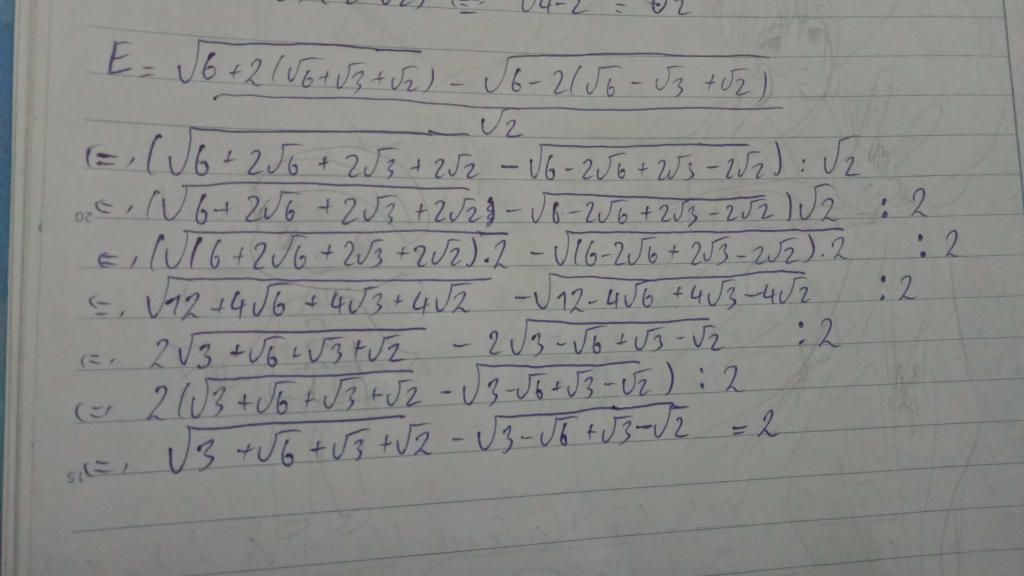 √4-2 = √2
E = √(6+2(√6+√3+√2)) - √(6-2(√6-√3+√2))
√2
(=, (√(6+2√6+2√3+2√2) - √(6-2√6+2√3-2√2)) : √2
20 (=, (√(6+2√6+2√3+2√2) - √(6-2√6+2√3-2√2))√2 : 2
(=, (√((6+2√6+2√3+2√2).2) - √((6-2√6+2√3-2√2).2) : 2
(=, √(12+4√6+4√3+4√2) - √(12-4√6+4√3-4√2) : 2
(=, 2√(3+√6+√3+√2) - 2√(3-√6+√3-√2) : 2
(=, 2(√(3+√6+√3+√2) - √(3-√6+√3-√2)) : 2
15 (=, √(3+√6+√3+√2) - √(3-√6+√3-√2) = 2